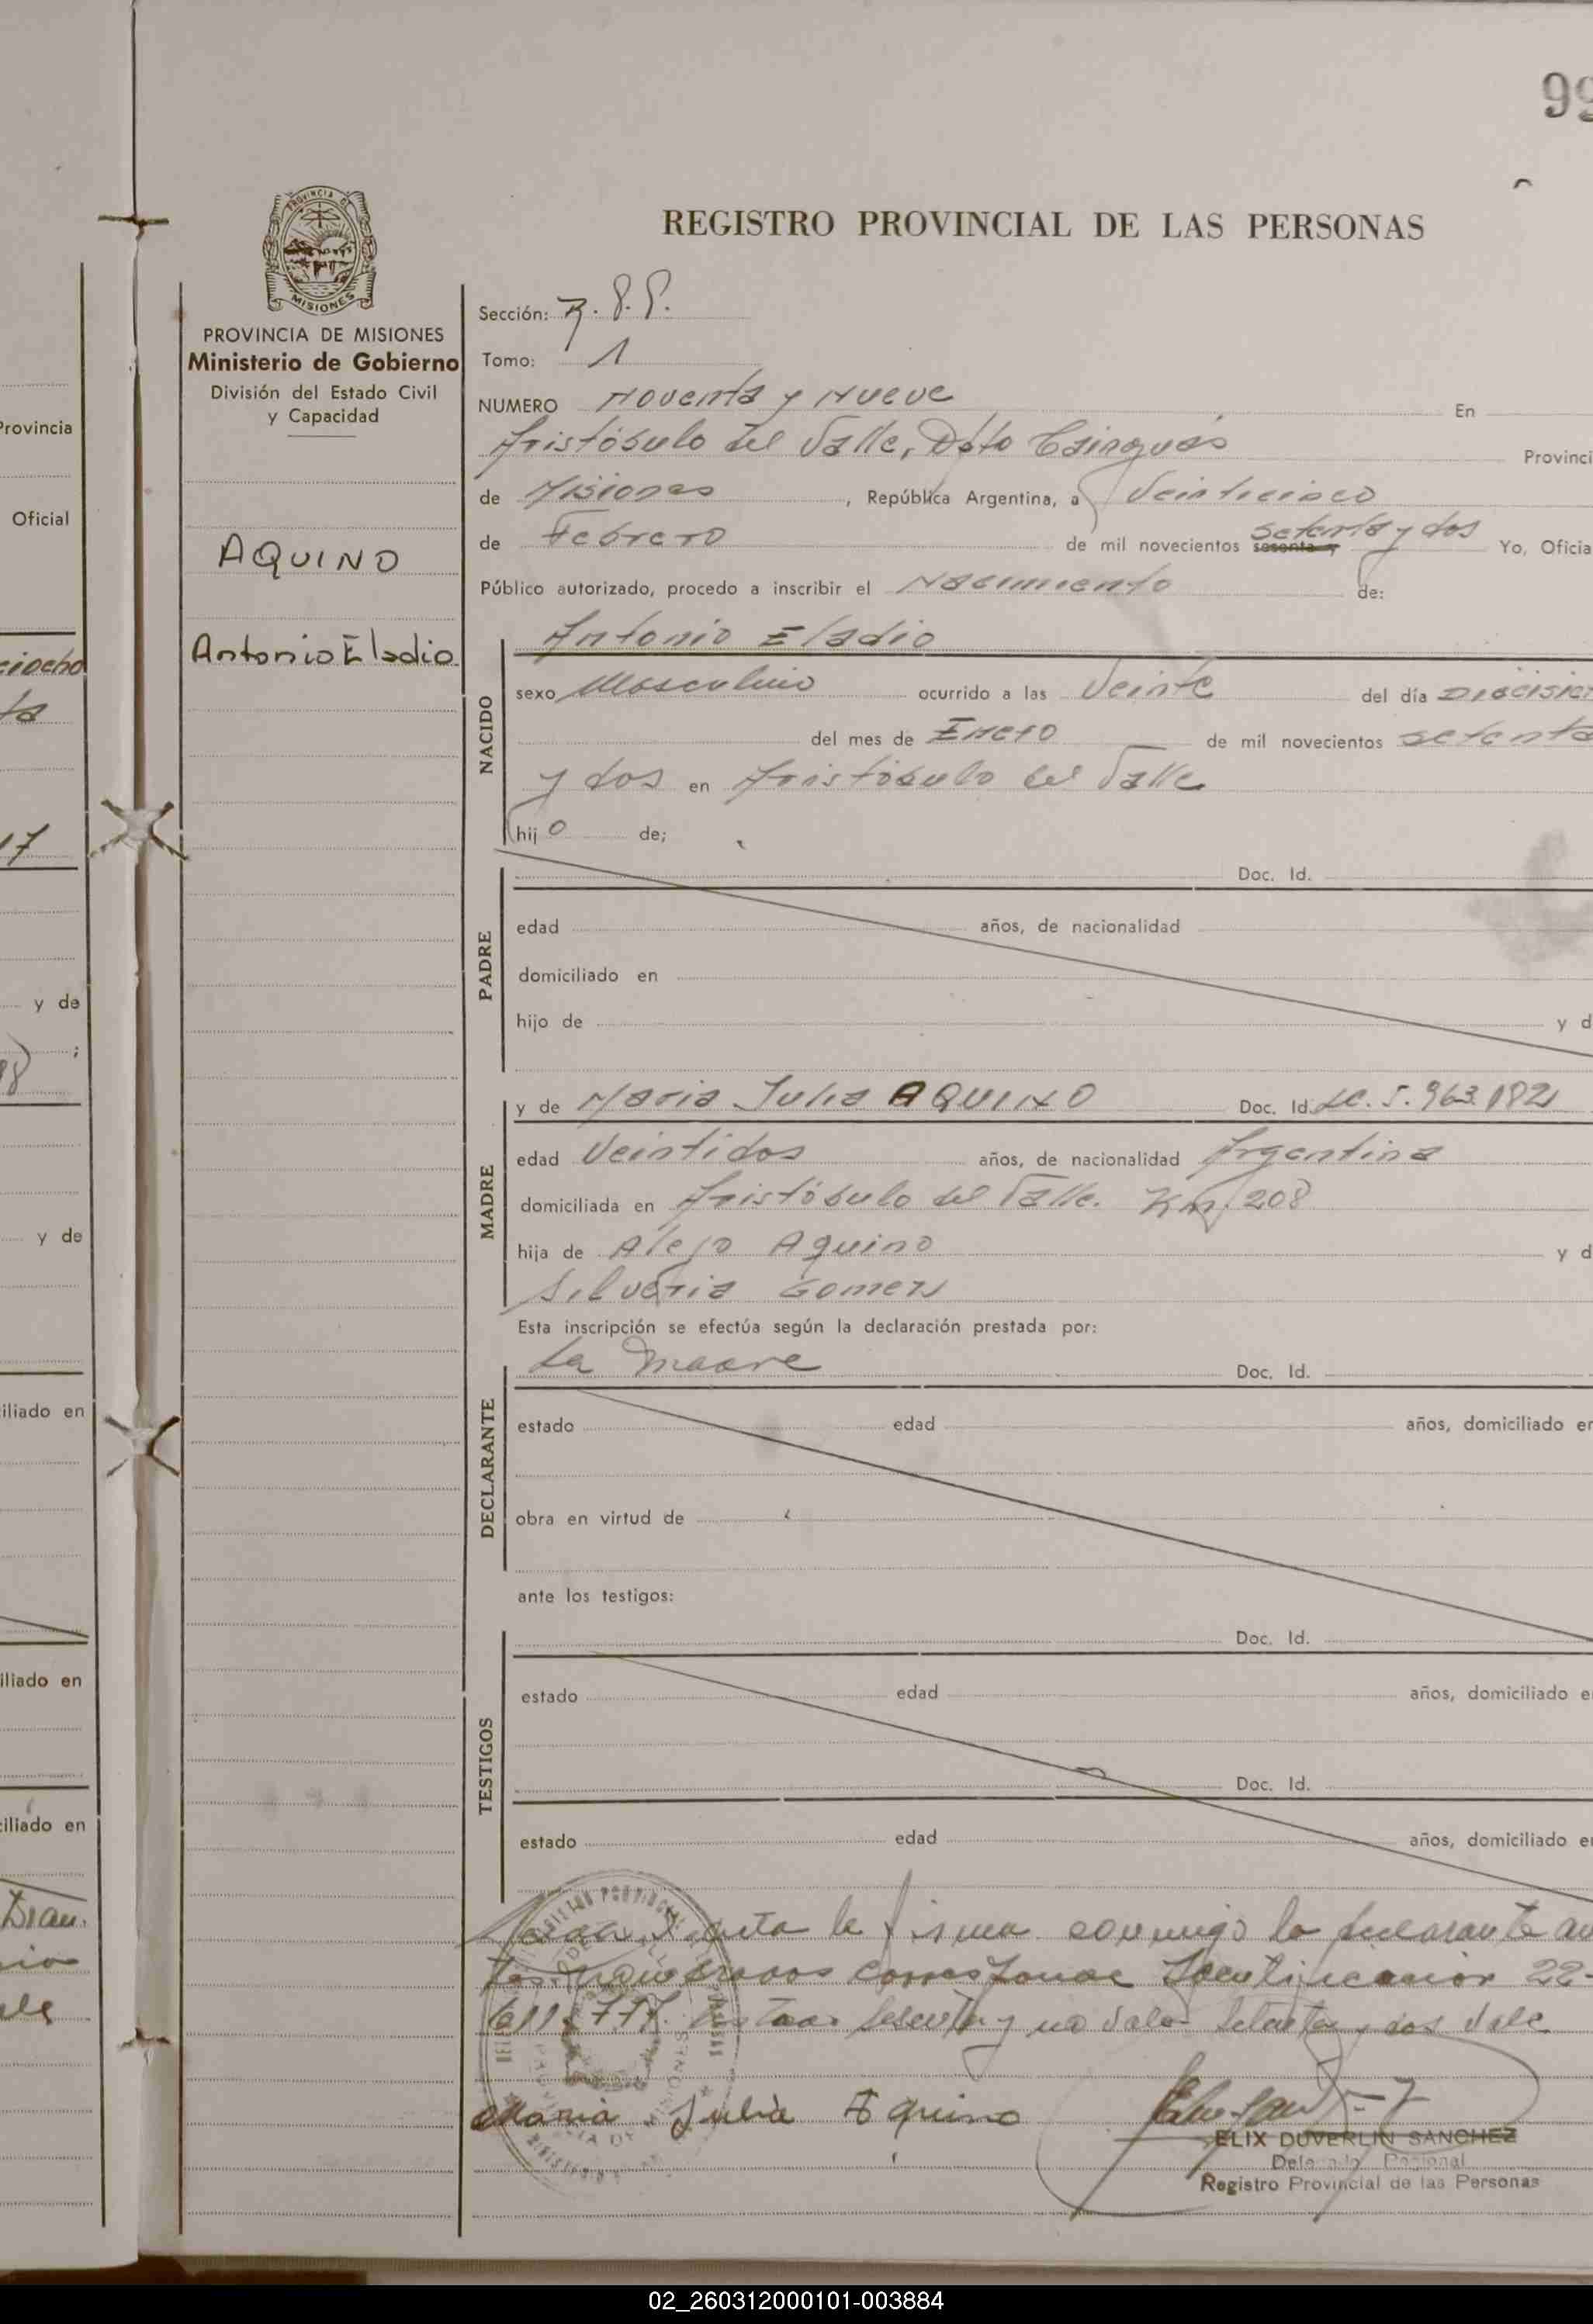 99
REGISTRO PROVINCIAL DE LAS PERSONAS
PROVINCIA DE
MISIONES
PROVINCIA DE MISIONES
Ministerio de Gobierno
División del Estado Civil
y Capacidad
AQUINO
Antonio Eladio
Provincia
Oficial
ciocho
ta
17
y de
98 ;
y de
iliado en
iliado en
iliado en
Sección:
Tomo: 1
NUMERO Noventa y Nueve En
Aristóbulo del Valle, Dpto Cainguás Provinci
de Misiones, República Argentina, a Veinticinco
de Febrero de mil novecientos sesenta y setenta y dos Yo, Oficia
Público autorizado, procedo a inscribir el Nacimiento de:
NACIDO
Antonio Eladio
sexo Masculino ocurrido a las Veinte del día Diecisiet
del mes de Enero de mil novecientos setenta
y dos en Aristóbulo del Valle
hijo de;
PADRE
Doc. Id.
edad años, de nacionalidad
domiciliado en
hijo de y d
MADRE
y de Maria Julia AQUINO Doc. Id. LC. 5.963.182
edad Veintidos años, de nacionalidad Argentina
domiciliada en Aristóbulo del Valle. Km. 208
hija de Alejo Aquino y d
Silveria Gomez
Esta inscripción se efectúa según la declaración prestada por:
DECLARANTE
La madre Doc. Id.
estado edad años, domiciliado en
obra en virtud de
ante los testigos:
TESTIGOS
Doc. Id.
estado edad años, domiciliado e
Doc. Id.
estado edad años, domiciliado e
acta la firma conmigo la declarante an
corresponde Identificacion 22-
611.717. sesenta y no vale setenta y dos vale
Maria Julia Aquino
ELIX DUVERLIN SANCHEZ
Registro Provincial de las Personas
02_260312000101-003884